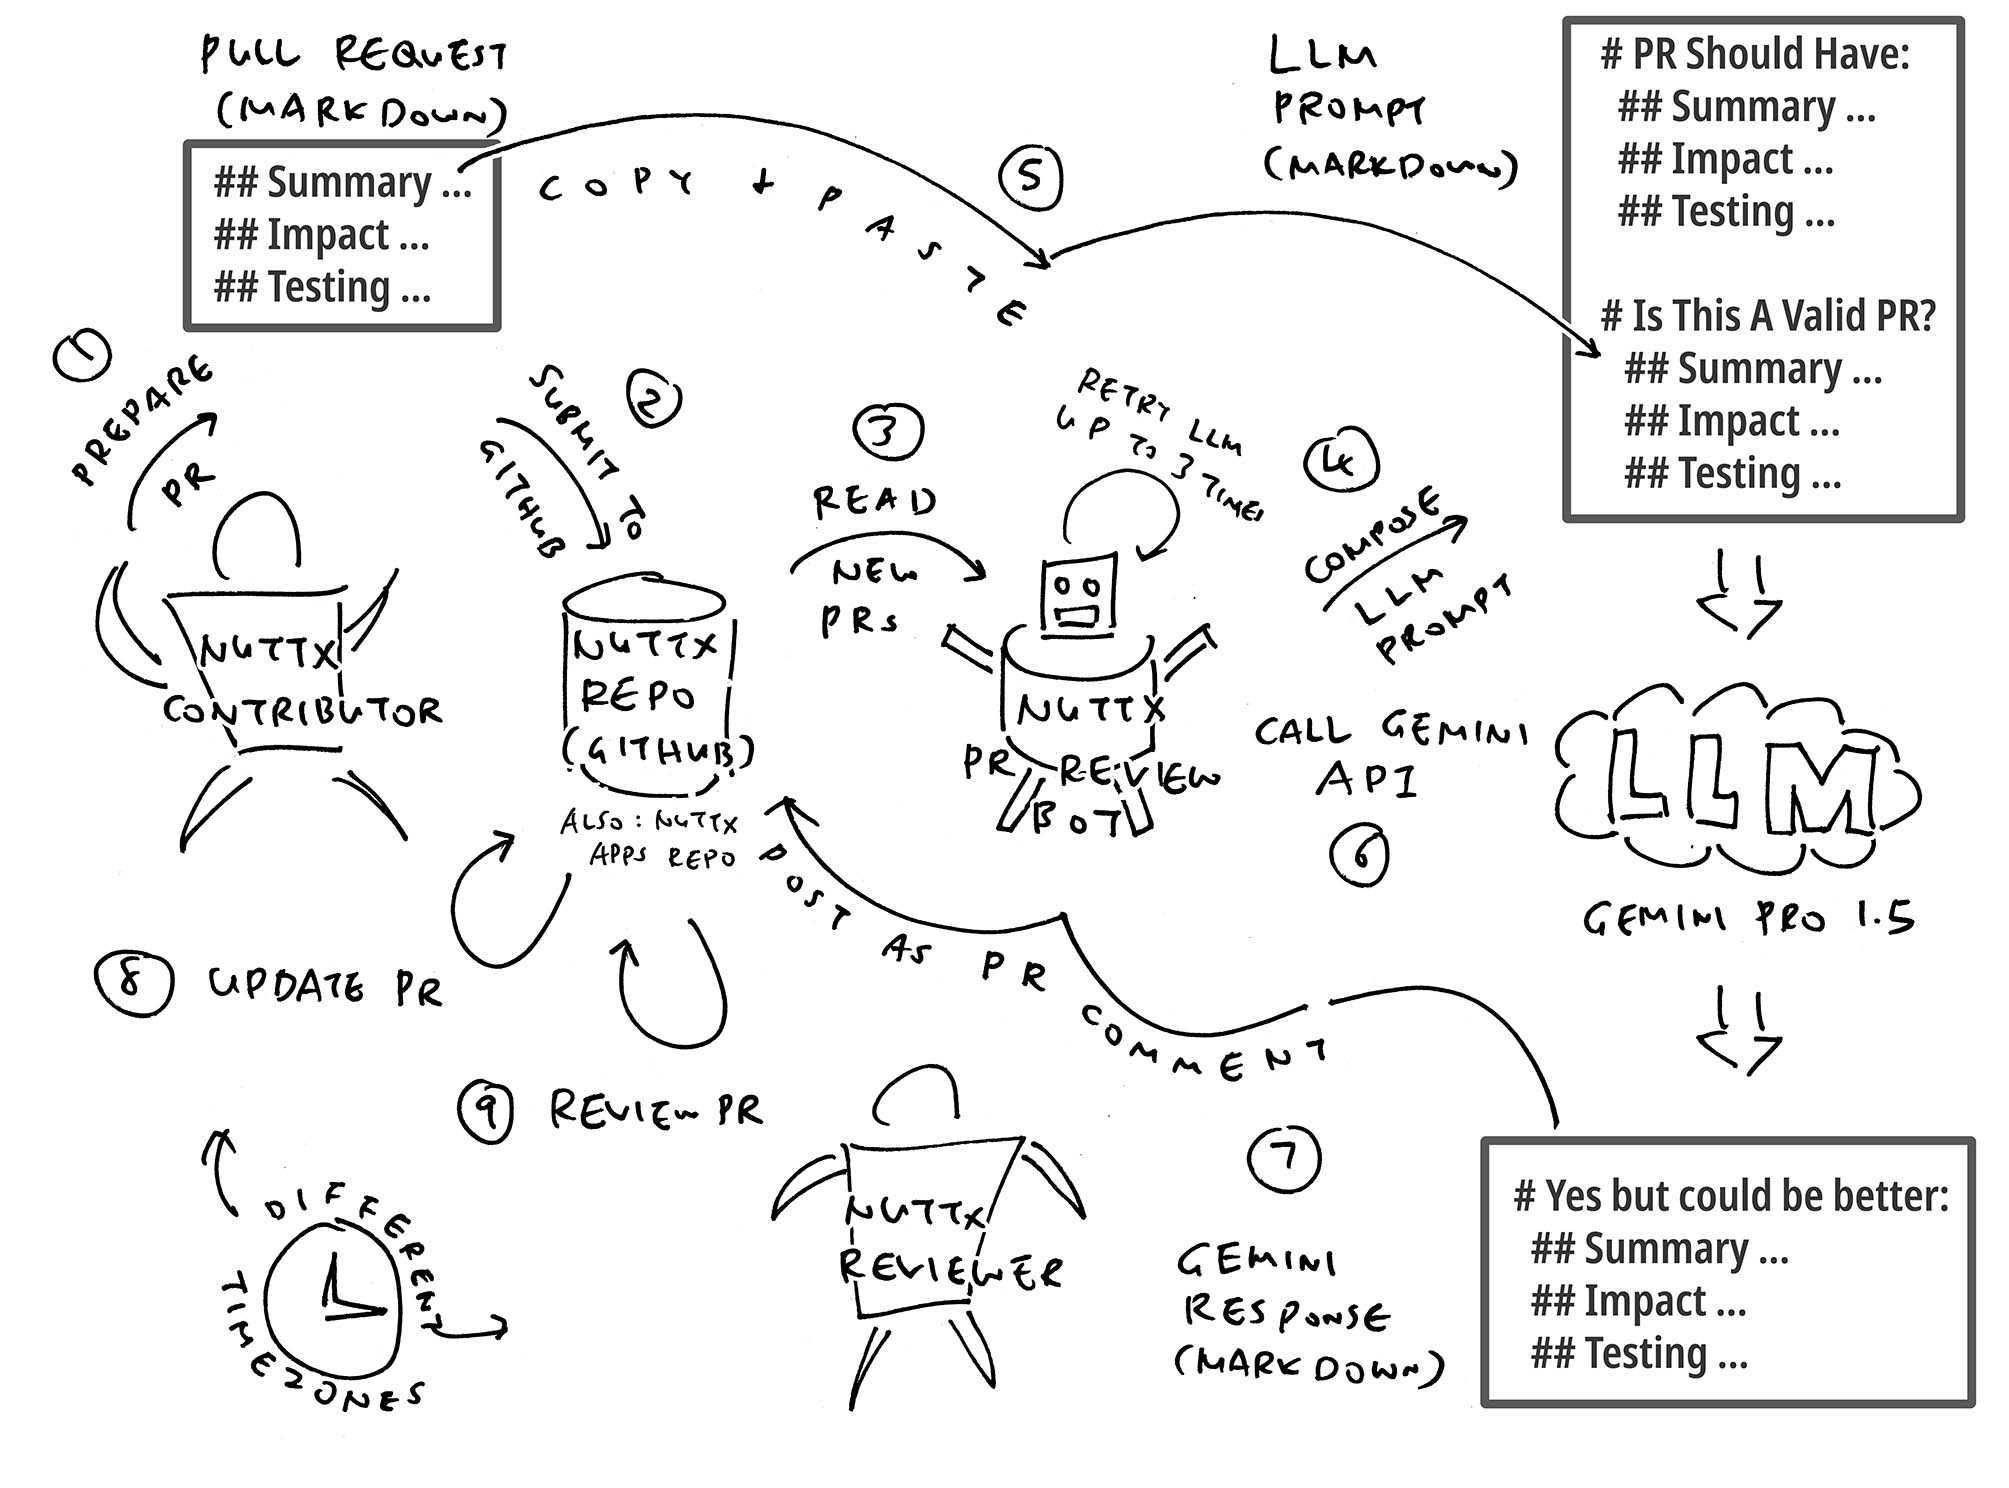 PULL REQUEST
(MARKDOWN)
## Summary ...
## Impact ...
## Testing ...
COPY + PASTE
5
LLM
PROMPT
(MARKDOWN)
# PR Should Have:
## Summary ...
## Impact ...
## Testing ...
# Is This A Valid PR?
## Summary ...
## Impact ...
## Testing ...
1
PREPARE
PR
NUTTX
CONTRIBUTOR
2
SUBMIT TO
GITHUB
NUTTX
REPO
(GITHUB)
ALSO: NUTTX
APPS REPO
3
READ
NEW
PRs
RETRY LLM
UP TO 3 TIMES
NUTTX
PR REVIEW
BOT
4
COMPOSE
LLM
PROMPT
CALL GEMINI
API
6
LLM
GEMINI PRO 1.5
POST AS PR COMMENT
8 UPDATE PR
9 REVIEW PR
DIFFERENT
TIMEZONES
NUTTX
REVIEWER
7
GEMINI
RESPONSE
(MARKDOWN)
# Yes but could be better:
## Summary ...
## Impact ...
## Testing ...